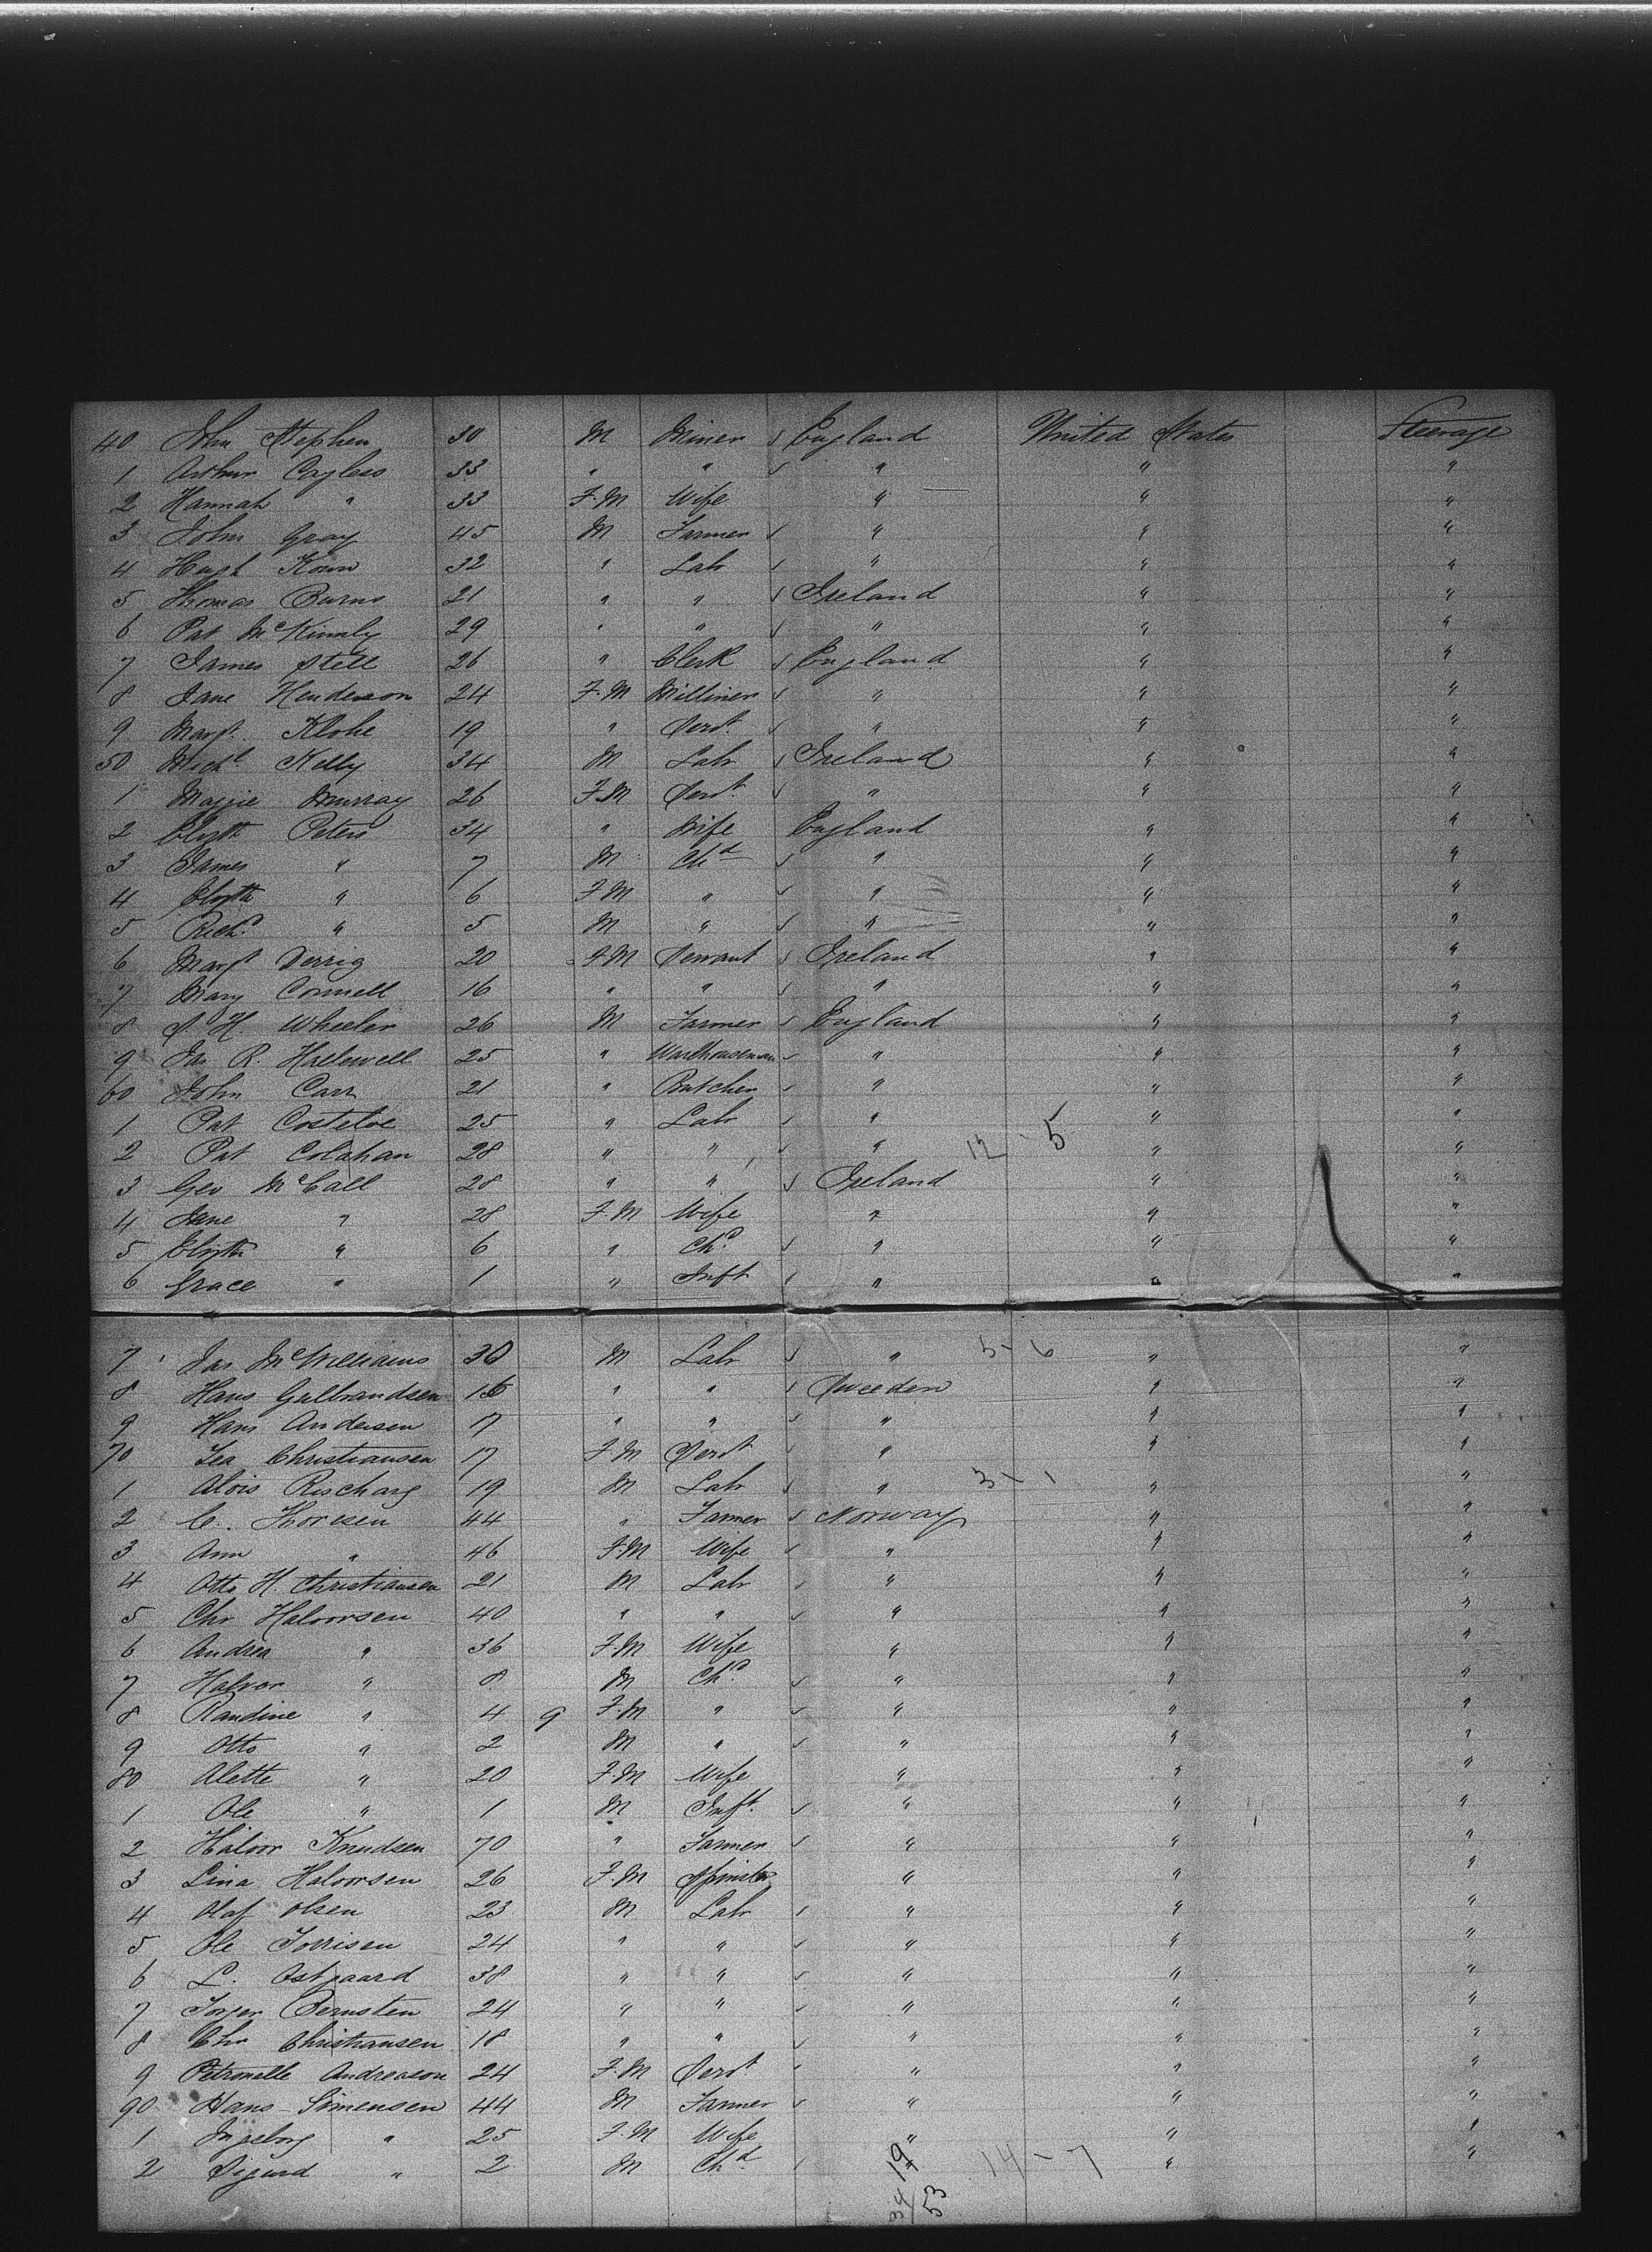 40 John Stephen 30 M Miner England United States Steerage
1 Arthur Cayless 33 " " " " "
2 Hannah " 33 F.M Wife " " "
3 John Gray 45 M Farmer " " "
4 Hugh 32 " Labr " " "
5 Thomas Burns 21 " " Ireland " "
6 Pat McKinnly 29 " " " " "
7 James Stell 26 " Clerk England " "
8 Jane Henderson 24 F.M Milliner " " "
9 Margt. Klohe 19 " Servt. " " "
50 Michl Kelly 34 M Labr Ireland " "
1 Maggie Murray 26 F.M Servt. " " "
2 Elizth Peters 34 " Wife England " "
3 James " 7 M Chd " " "
4 Elizth " 6 F.M " " " "
5 Richd. " 5 M " " " "
6 Margt Derrig 20 F.M Servant Ireland " "
7 Mary Connell 16 " " " " "
8 S. H. Wheeler 26 M Farmer England " "
9 Jas R. Hallewell 25 " Warehouseman " " "
60 John Carr 21 " Butcher " " "
1 Pat Costeloe 25 " Labr " " "
2 Pat Colahan 28 " " " 12 - 5 " "
3 Geo McCall 28 " " Ireland " "
4 Jane " 28 F.M Wife " " "
5 Elizth " 6 " Chd. " " "
6 Grace " 1 " Inft " " "
7 Jas McWilliams 30 M Labr " 5 - 6 " "
8 Hans Gulbrandsen 16 " " Sweeden " "
9 Hans Andersen 17 " " " " "
70 Lea Christiansen 17 F.M Servt " " "
1 Alois Rischarg 19 M Labr " 3 - 1 " "
2 C. Thoresen 44 " Farmer Norway " "
3 Ann " 46 F.M Wife " " "
4 Otto H. Christiansen 21 M Labr " " "
5 Chr Halvorsen 40 " " " " "
6 Andrea " 36 F.M Wife " " "
7 Halvor " 8 M Chd. " " "
8 Randine " 4 9 F.M " " " "
9 Otto " 2 M " " " "
80 Alette " 20 F.M Wife " " "
1 Ole " 1 M Inft. " " "
2 Halvor Knudsen 70 " Farmer " " "
3 Lina Halvorsen 26 F.M Spinster " " "
4 Olaf Olsen 23 M Labr " " "
5 Ole Torrisen 24 " " " " "
6 L. Ostgaard 38 " " " " "
7 Torger Bernsten 24 " " " " "
8 Chr Christiansen 18 " " " " "
9 Petronelle Andreason 24 F.M Servt " " "
90 Hans Simensen 44 M Farmer " " "
1 Ingeborg " 25 F.M Wife " " "
2 Sigurd " 2 M Chd " 14 - 7 " "
19
34
53